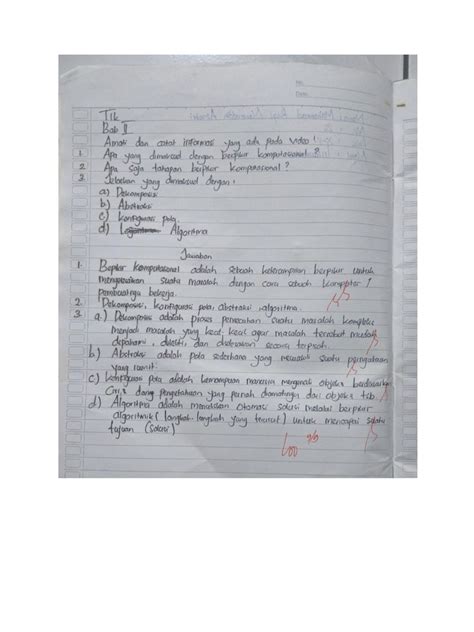 No.
Date.
Tik
Bab II
Amati dan catat informasi yang ada pada video!
1. Apa yang dimaksud dengan berpikir komputasional?
2. Apa saja tahapan berpikir komputasional?
3. Jelaskan yang dimaksud dengan:
a) Dekomposisi
b) Abstraksi
c) Konfigurasi pola
d) Algoritma
Jawaban
1. Berpikir komputasional adalah sebuah keterampilan berpikir untuk
menyelesaikan suatu masalah dengan cara sebuah komputer /
pembuatnya bekerja.
2. Dekomposisi, konfigurasi pola, abstraksi, algoritma.
3. a.) Dekomposisi adalah proses pemecahan suatu masalah kompleks
menjadi masalah yang kecil kecil agar masalah tersebut mudah
dipahami, diteliti, dan diselesaikan secara terpisah.
b) Abstraksi adalah pola sederhana yang mewakili suatu pengalaman
yang rumit.
c) Konfigurasi pola adalah kemampuan manusia mengenali objek berdasarkan
ciri" dan pengetahuan yang pernah diamatinya dari objek tsb.
d) Algoritma adalah menuliskan otomasi solusi melalui berpikir
algoritmik (langkah-langkah yang terurut) untuk mencapai suatu
tujuan (solusi)
100